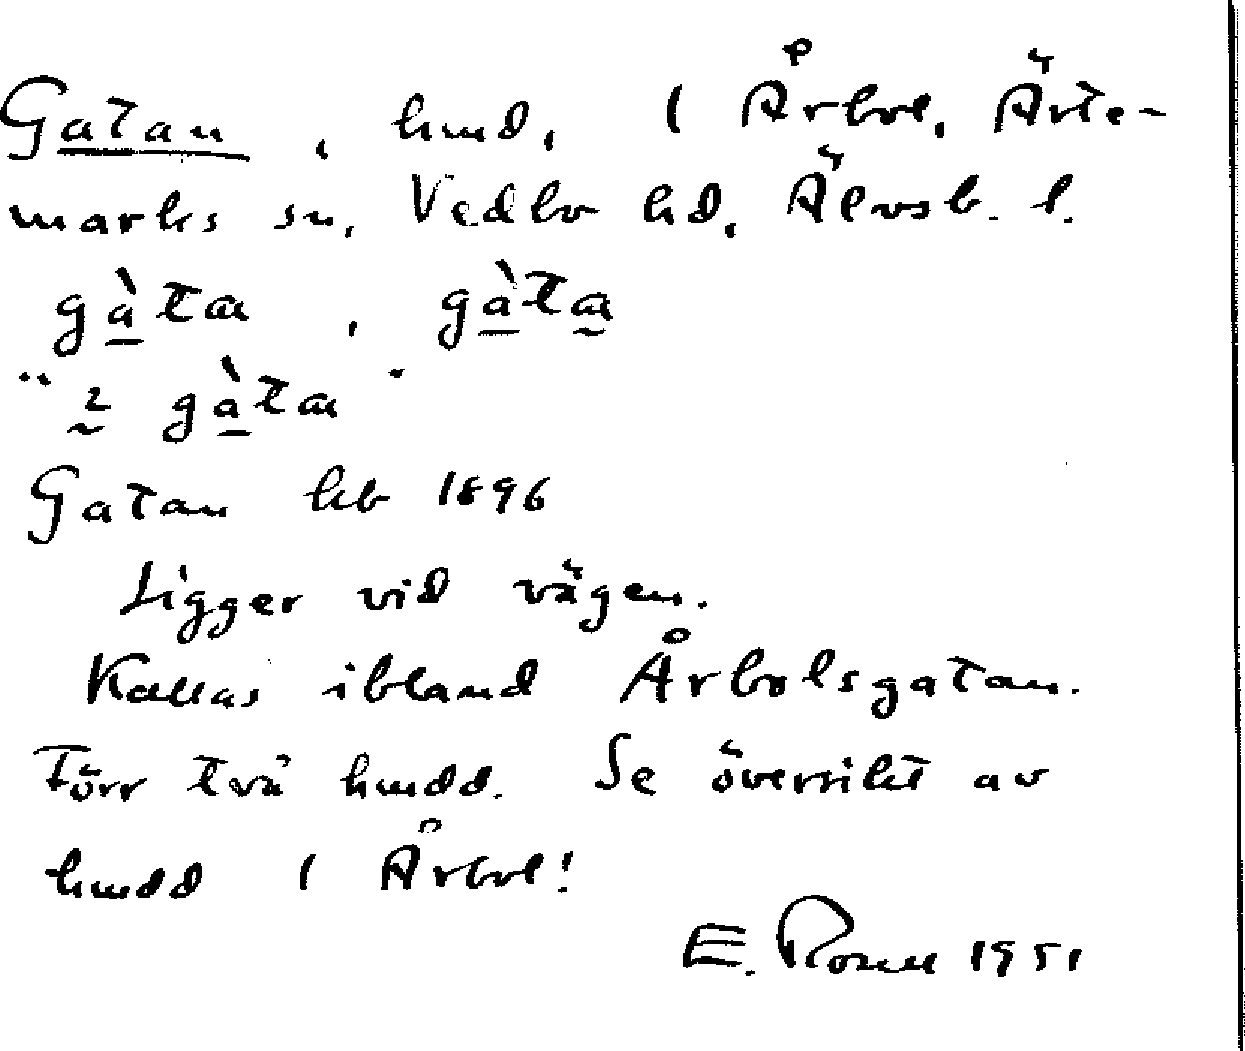 Gatan, hmd, i Årbol, Ärte-
marks sn, Vedbo hd, Älvsb. l.
gàtα, gàtα
gàtα
Gatan kb 1896
Ligger vid vägen.
Kallas ibland Årbolsgatan.
Förr två hmdd. Se översikt av
hmdd i Årbol!
E. 1951